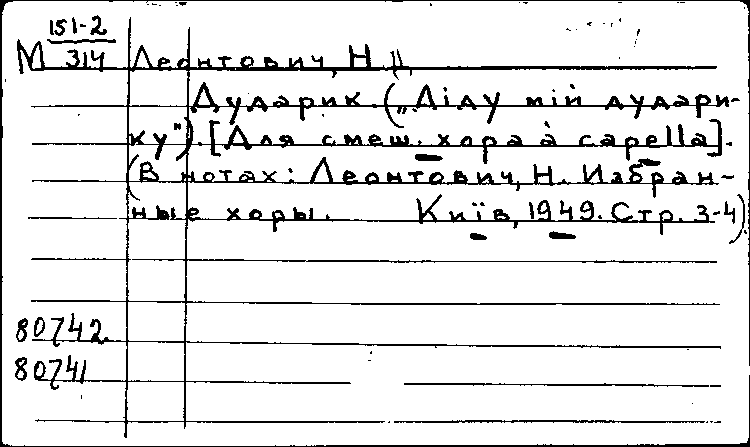 151-2
М 314 Леонтович, Н. Д.
Дударик. („Діду мій дудари-
ку"). [Для смеш. хора à capella].
(В нотах: Леонтович, Н. Избран-
ные хоры. Київ, 1949. Стр. 3-4).
80742.
80741